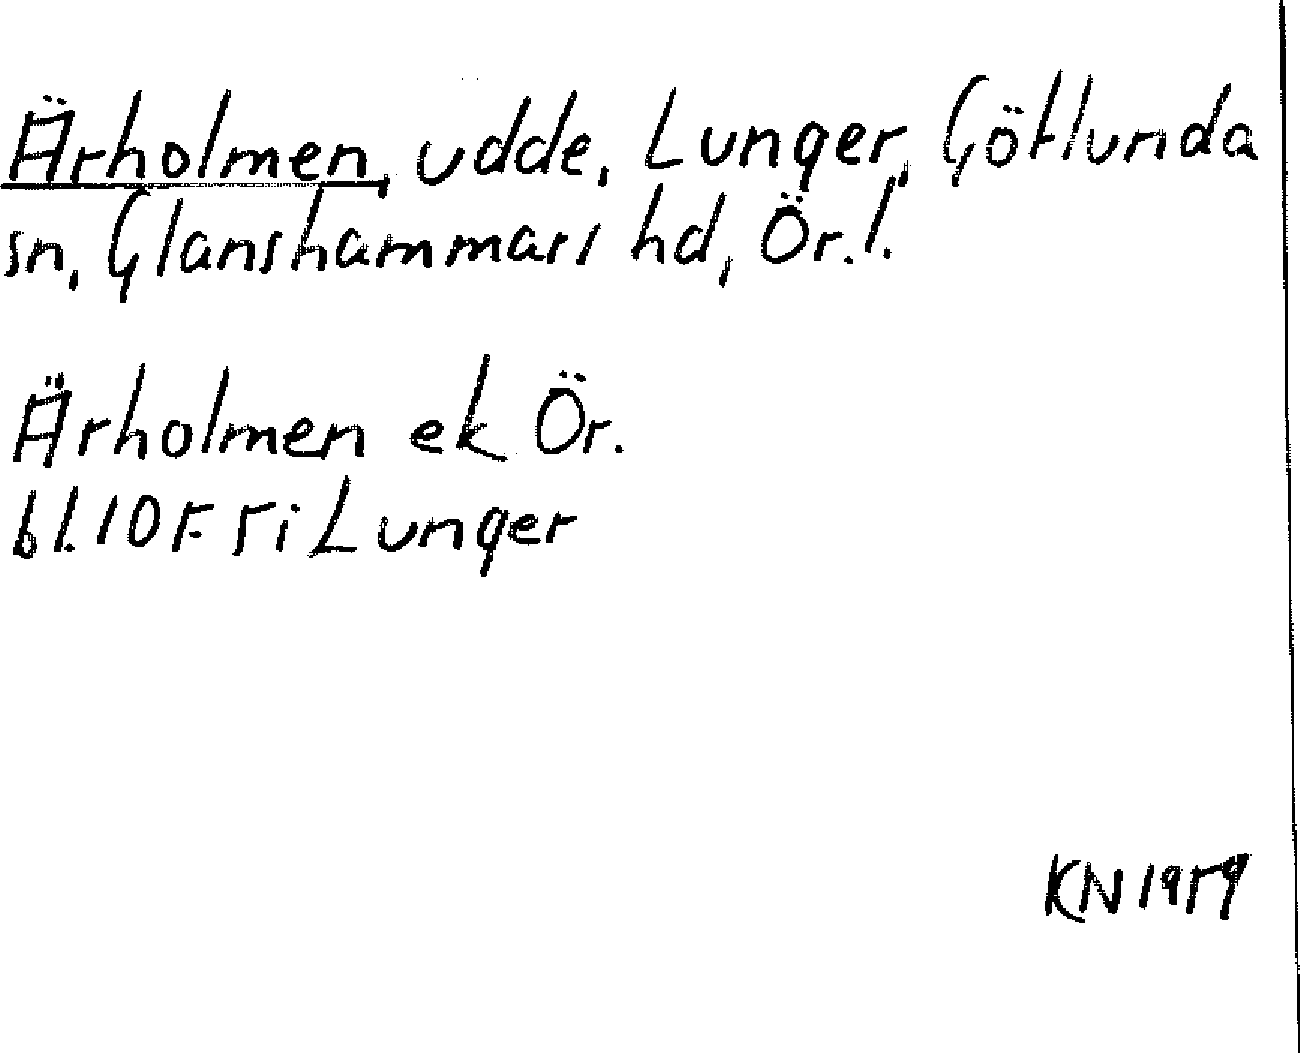 Ärholmen, udde, Lunger, Götlunda
sn, Glanshammars hd, Ör. l.
Ärholmen ek Ör.
bl. 10 F. 5 i Lunger
KN 1959